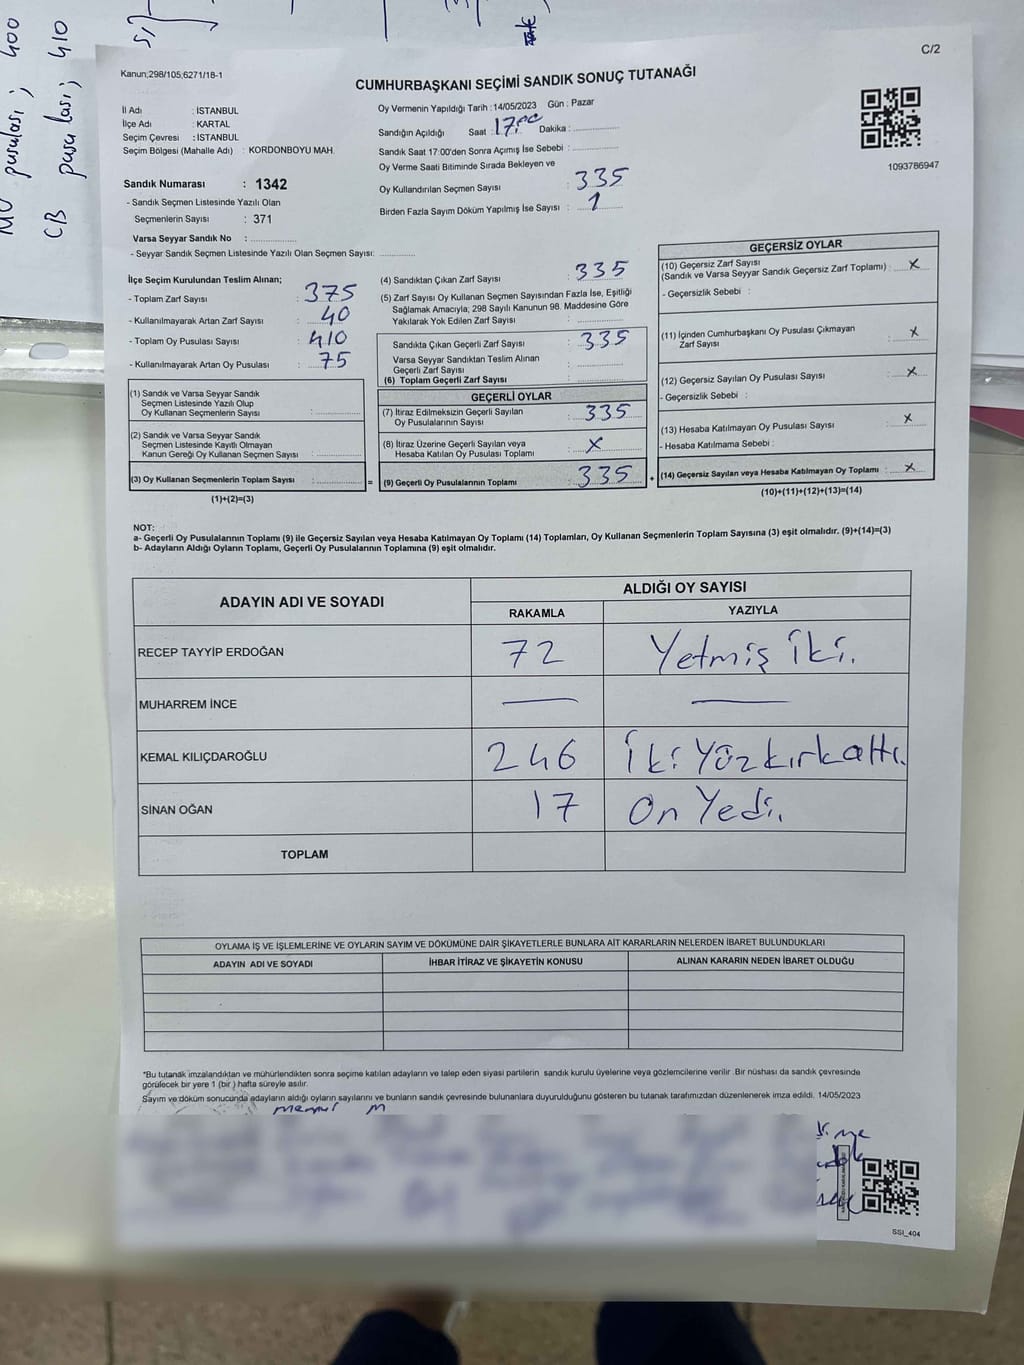 MV pusulası; 400
CB pusulası; 410
C/2
Kanun;298/105;6271/18-1
CUMHURBAŞKANI SEÇİMİ SANDIK SONUÇ TUTANAĞI
İl Adı : İSTANBUL
İlçe Adı : KARTAL
Seçim Çevresi : İSTANBUL
Seçim Bölgesi (Mahalle Adı) : KORDONBOYU MAH.
Sandık Numarası : 1342
- Sandık Seçmen Listesinde Yazılı Olan
Seçmenlerin Sayısı : 371
Varsa Seyyar Sandık No :
- Seyyar Sandık Seçmen Listesinde Yazılı Olan Seçmen Sayısı:
Oy Vermenin Yapıldığı Tarih :14/05/2023 Gün : Pazar
Sandığın Açıldığı Saat : 17.00 Dakika :
Sandık Saat 17:00'den Sonra Açımış İse Sebebi :
Oy Verme Saati Bitiminde Sırada Bekleyen ve
Oy Kullandırılan Seçmen Sayısı : 335
Birden Fazla Sayım Döküm Yapılmış İse Sayısı : 1
1093786947
İlçe Seçim Kurulundan Teslim Alınan;
- Toplam Zarf Sayısı : 375
- Kullanılmayarak Artan Zarf Sayısı : 40
- Toplam Oy Pusulası Sayısı : 410
- Kullanılmayarak Artan Oy Pusulası : 75
(1) Sandık ve Varsa Seyyar Sandık
Seçmen Listesinde Yazılı Olup
Oy Kullanan Seçmenlerin Sayısı :
(2) Sandık ve Varsa Seyyar Sandık
Seçmen Listesinde Kayıtlı Olmayan
Kanun Gereği Oy Kullanan Seçmen Sayısı :
(3) Oy Kullanan Seçmenlerin Toplam Sayısı :
(1)+(2)=(3)
(4) Sandıktan Çıkan Zarf Sayısı : 335
(5) Zarf Sayısı Oy Kullanan Seçmen Sayısından Fazla İse, Eşitliği
Sağlamak Amacıyla, 298 Sayılı Kanunun 98. Maddesine Göre
Yakılarak Yok Edilen Zarf Sayısı :
Sandıkta Çıkan Geçerli Zarf Sayısı : 335
Varsa Seyyar Sandıktan Teslim Alınan
Geçerli Zarf Sayısı :
(6) Toplam Geçerli Zarf Sayısı :
=
GEÇERLİ OYLAR
(7) İtiraz Edilmeksizin Geçerli Sayılan
Oy Pusulalarının Sayısı : 335
(8) İtiraz Üzerine Geçerli Sayılan veya
Hesaba Katılan Oy Pusulası Toplamı : X
(9) Geçerli Oy Pusulalarının Toplamı : 335
+
GEÇERSİZ OYLAR
(10) Geçersiz Zarf Sayısı
(Sandık ve Varsa Seyyar Sandık Geçersiz Zarf Toplamı) : X
- Geçersizlik Sebebi :
(11) İçinden Cumhurbaşkanı Oy Pusulası Çıkmayan
Zarf Sayısı : X
(12) Geçersiz Sayılan Oy Pusulası Sayısı : X
- Geçersizlik Sebebi :
(13) Hesaba Katılmayan Oy Pusulası Sayısı : X
- Hesaba Katılmama Sebebi :
(14) Geçersiz Sayılan veya Hesaba Katılmayan Oy Toplamı : X
(10)+(11)+(12)+(13)=(14)
NOT:
a- Geçerli Oy Pusulalarının Toplamı (9) ile Geçersiz Sayılan veya Hesaba Katılmayan Oy Toplamı (14) Toplamları, Oy Kullanan Seçmenlerin Toplam Sayısına (3) eşit olmalıdır. (9)+(14)=(3)
b- Adayların Aldığı Oyların Toplamı, Geçerli Oy Pusulalarının Toplamına (9) eşit olmalıdır.
ADAYIN ADI VE SOYADI ALDIĞI OY SAYISI
RAKAMLA YAZIYLA
RECEP TAYYİP ERDOĞAN 72 Yetmiş iki.
MUHARREM İNCE — —
KEMAL KILIÇDAROĞLU 246 İki Yüzkırkaltı.
SİNAN OĞAN 17 On Yedi.
TOPLAM
OYLAMA İŞ VE İŞLEMLERİNE VE OYLARIN SAYIM VE DÖKÜMÜNE DAİR ŞİKAYETLERLE BUNLARA AİT KARARLARIN NELERDEN İBARET BULUNDUKLARI
ADAYIN ADI VE SOYADI İHBAR İTİRAZ VE ŞİKAYETİN KONUSU ALINAN KARARIN NEDEN İBARET OLDUĞU
*Bu tutanak imzalandıktan ve mühürlendikten sonra seçime katılan adayların ve talep eden siyasi partilerin sandık kurulu üyelerine veya gözlemcilerine verilir .Bir nüshası da sandık çevresinde
görülecek bir yere 1 (bir ) hafta süreyle asılır.
Sayım ve döküm sonucunda adayların aldığı oyların sayılarını ve bunların sandık çevresinde bulunanlara duyurulduğunu gösteren bu tutanak tarafımızdan düzenlenerek imza edildi. 14/05/2023
SSI_404